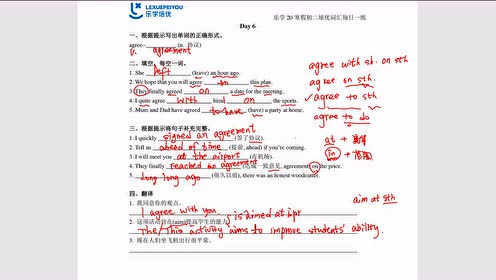 LEXUEPEIYOU
乐学培优
乐学 20 寒假初二培优词汇每日一练
Day 6
一、根据提示写出单词的正确形式。
agree-- (n. 协议)
v. agreement
二、填空，每空一词。
1. She left (leave) an hour ago.
2. We hope that you will agree to this plan.
3. They finally agreed on a date for the meeting.
4. I quite agree with him on the sports.
5. Mum and Dad have agreed to have (have) a party at home.
agree with sb. on sth
agree on sth.
✓ agree to sth
agree to do
三、根据提示将句子补充完整。
1. I quickly signed an agreement (签了协议).
2. Tell us ahead of time (提前, ahead) if you're coming.
3. I will meet you at the airport (在机场).
4. They finally reached an agreement (达成一致意见, agreement) on the price.
5. Long long ago (很久以前), there was an honest woodcutter.
at +
in + 范围
四、翻译
1. 我同意你的观点。
I agree with you.
aim at sth
2. 这项活动旨在(aim)提高学生的能力。
is aimed at
The/This activity aims to improve students' ability.
3. 现在人们坐飞机出行很平常。